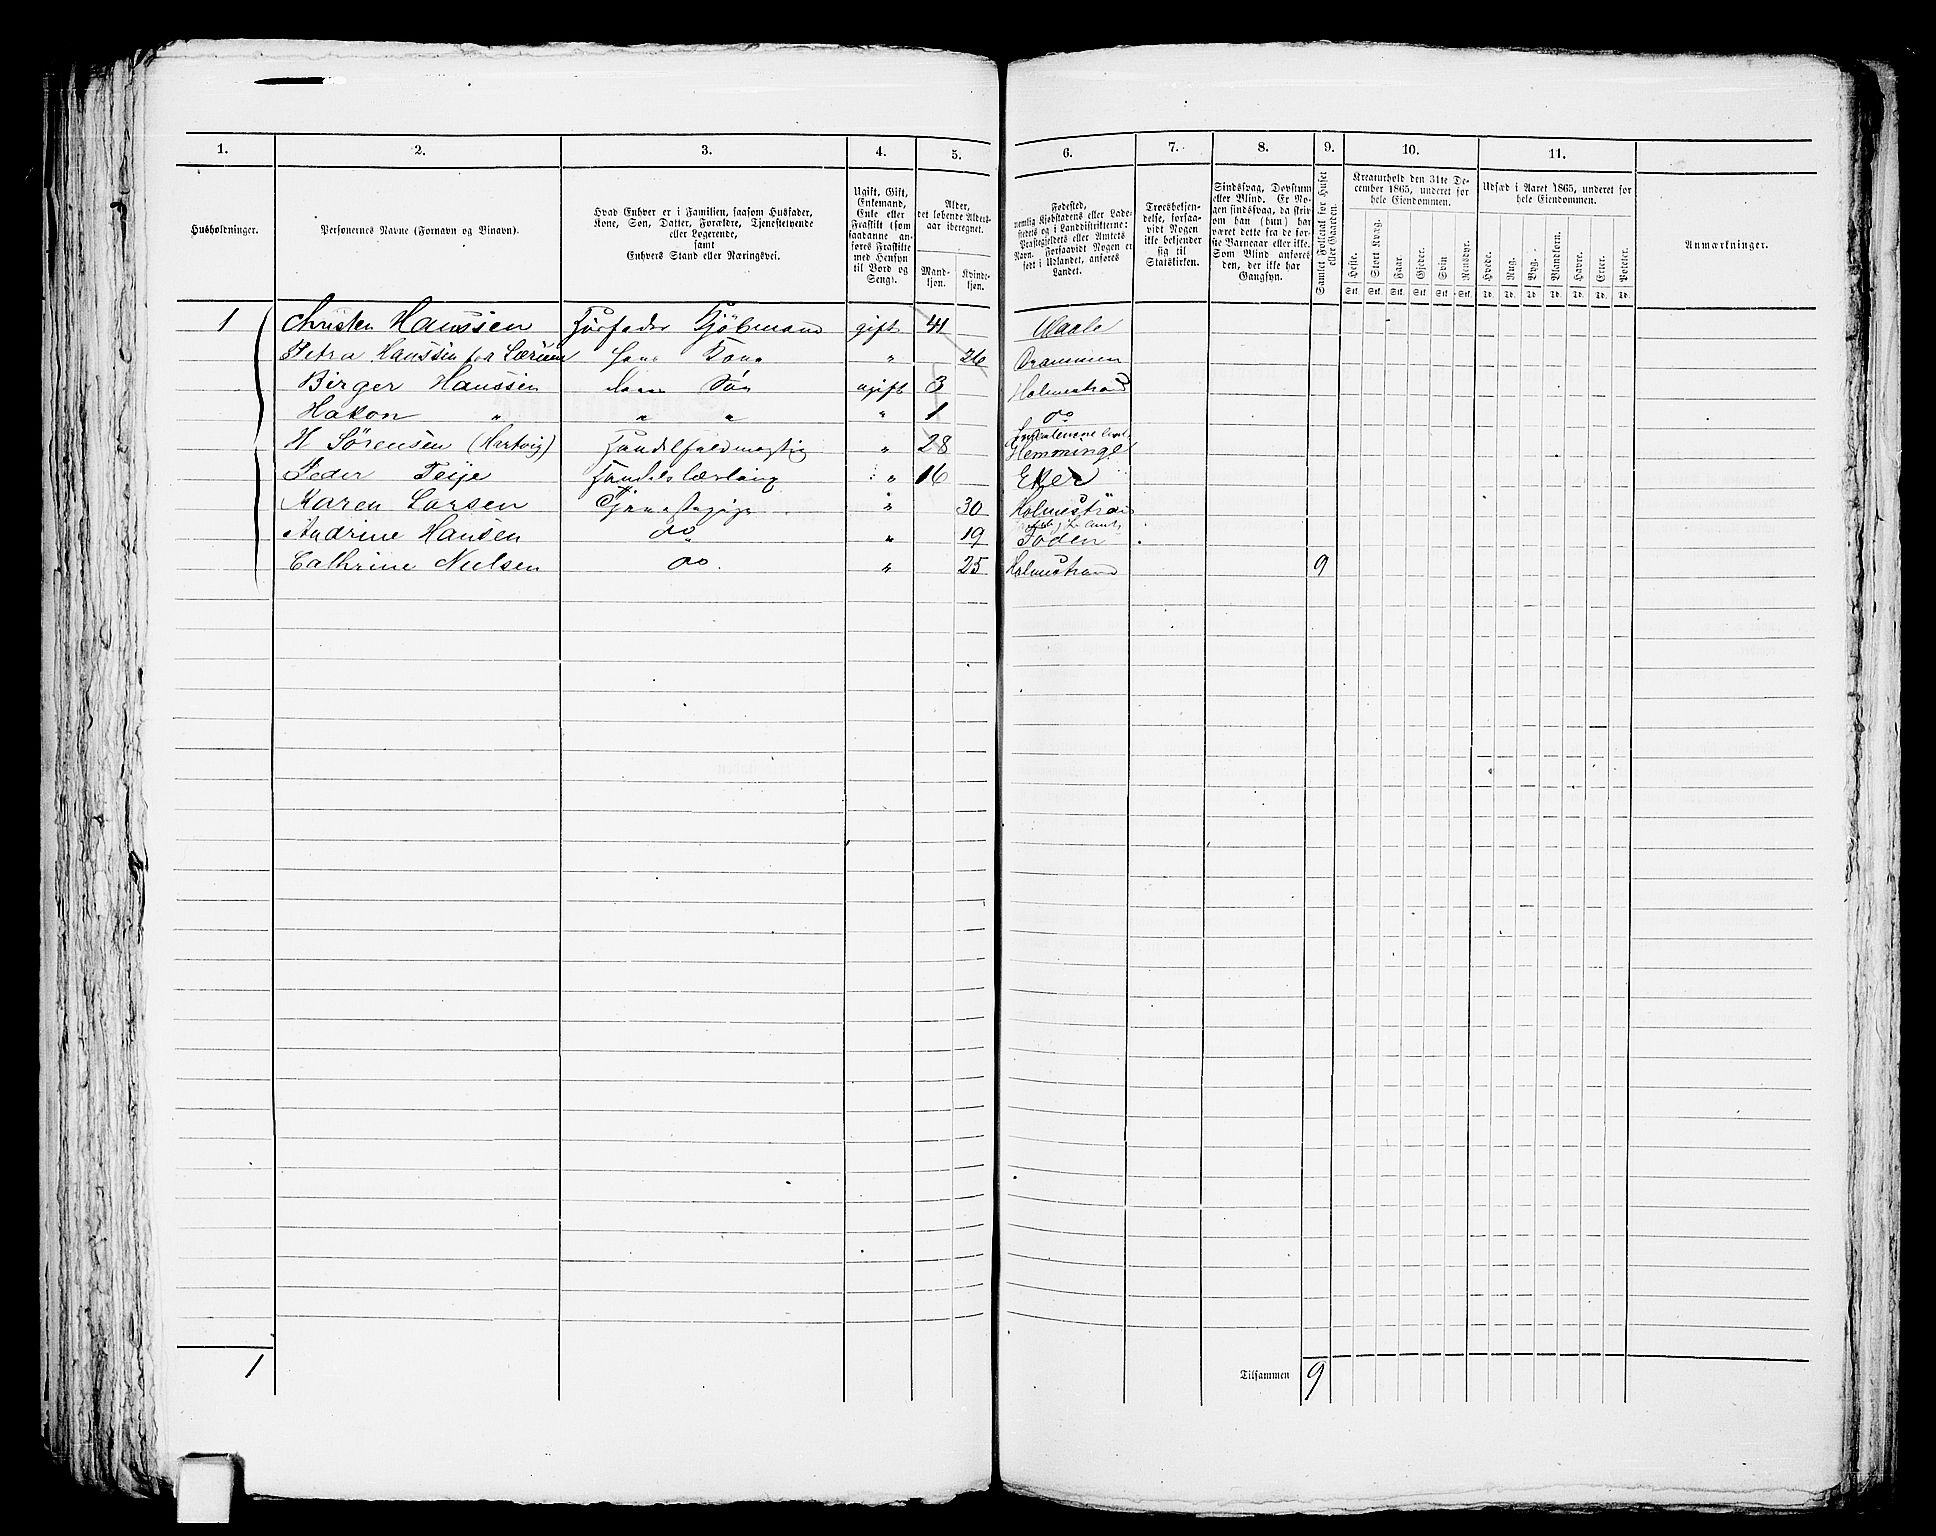 1. 2. 3. 4. 5. 6. 7. 8. 9. 10. 11.
Husholdninger.
Personernes Navne (Fornavn og Binavn).
Hvad Enhver er i Familien, saasom Husfader,
Kone, Søn, Datter, Forældre, Tjenestetyende
eller Logerende,
samt
Enhvers Stand eller Næringsvei.
Ugift, Gift,
Enkemand,
Enke eller
Fraskilt (som
saadanne an-
føres Fraskilte
med Hensyn
til Bord og
Seng).
Alder,
det løbende Alders-
aar iberegnet.
Mand-
kjøn.
Kvinde-
kjøn.
Fødested,
nemlig Kjøbstadens eller Lade-
stedets og i Landdistrikterne:
Præstegjeldets eller Amtets
Navn. Forsaavidt Nogen er
født i Udlandet, anføres
Landet.
Troesbekjen-
delse, forsaa-
vidt Nogen
ikke bekjender
sig til
Statskirken.
Sindssvag, Døvstum
eller Blind. Er No-
gen sindssvag, da skri-
ves om han (hun) har
været dette fra de før-
ste Barneaar eller ikke.
Som Blind anføres
den, der ikke har
Gangsyn.
Samlet Folketal for Huset
eller Gaarden.
Kreaturhold den 31te De-
cember 1865, underet for
hele Eiendommen.
Heste. Stort Kvæg. Faar. Gjeder. Svin Rensdyr.
Stk. Stk. Stk. Stk. Stk. Stk.
Udsæd i Aaret 1865, underet for
hele Eiendommen.
Hvede. Rug. Byg. Blandkorn. Havre. Erter. Poteter.
Td. Td. Td. Td. Td. Td. Td.
Anmærkninger.
1 Christen Hanssen Husfader Kjøbmand gift 41 Vaale
Petra Hanssen fød Lærum hans Kone " 26 Drammen
Birger Hanssen deres Søn ugift 3 Holmestrand
Hakon " " " " 1 do
H Sørensen (Hartvig) Handelsfuldmægtig " 28 Hemmingt
Peder Teije Handelslærling " 16 Eker
Karen Larsen Tjenestepige " 30 Holmestrand
Andrine Hansen do " 19 Foden
Cathrine Nielsen do " 25 Holmestrand 9
1 Tilsammen 9